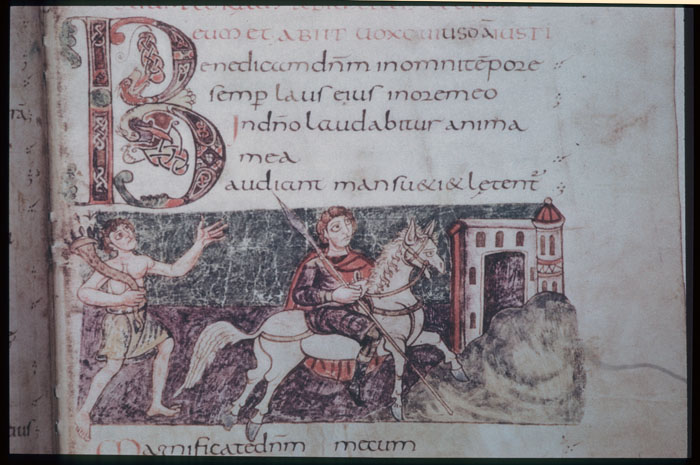 EUM ET ABIIT UOX CUIUSDĀ IUSTI
Benedicam dn̄m in omni tēpore
semp̄ laus eius in ore meo
In dn̄o laudabitur anima
mea
audiant mansu&i & lętent᷑
Magnificate dn̄m mecum